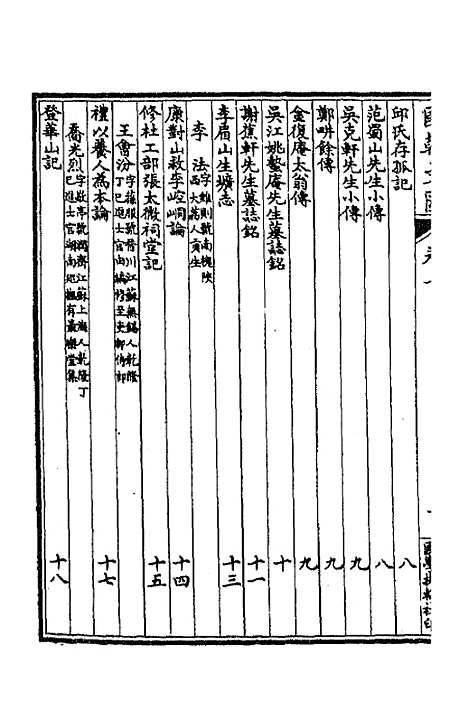 國朝文匯 卷八
國學扶輪社印
邱氏存孤記 八
范蜀山先生小傳 八
吳克軒先生小傳 九
鄭畊餘傳 九
金復庵太翁傳 九
吳江姚蟄庵先生墓誌銘 十
謝蕉軒先生墓誌銘 十一
李眉山生壙志 十三
李 法
字維則號南槐陝
西大荔人貢生
康對山救李崆峒論 十四
修杜工部張太微祠堂記 十五
王會汾
字蓀服號晉川江蘇無錫人乾隆
丁巳進士官由編修至吏部侍郎
禮以養人為本論 十七
喬光烈
字敬亭號潤齋江蘇上海人乾隆丁
巳進士官湖南巡撫有最樂堂集
登華山記 十八